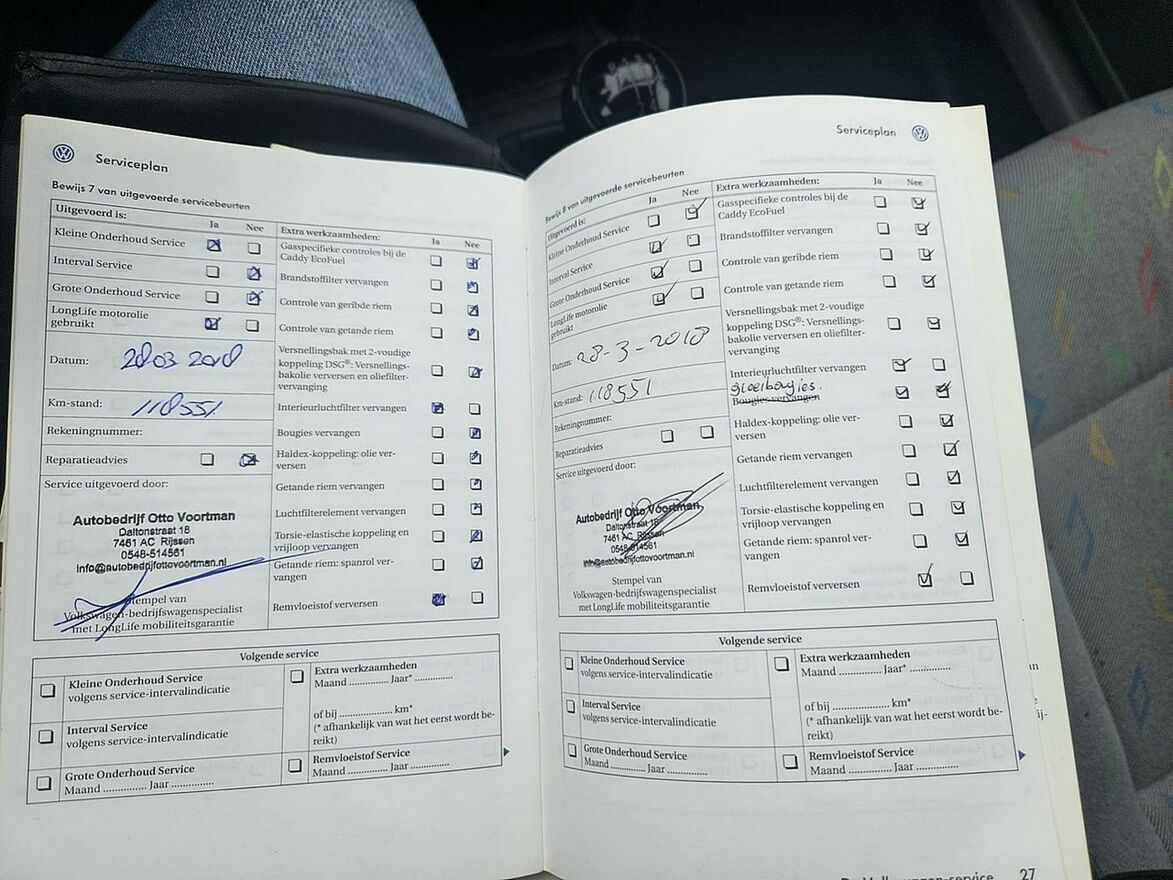 Serviceplan
Bewijs 7 van uitgevoerde servicebeurten
Uitgevoerd is:
Ja Nee
Kleine Onderhoud Service
Interval Service
Grote Onderhoud Service
LongLife motorolie
gebruikt
Datum: 28 03 2018
Km-stand: 118551
Rekeningnummer:
Reparatieadvies
Service uitgevoerd door:
Autobedrijf Otto Voortman
Daltonstraat 18
7461 AC Rijssen
0548-514561
info@autobedrijfottovoortman.nl
Stempel van
Volkswagen-bedrijfswagenspecialist
met LongLife mobiliteitsgarantie
Extra werkzaamheden:
Ja Nee
Gasspecifieke controles bij de
Caddy EcoFuel
Brandstoffilter vervangen
Controle van geribde riem
Controle van getande riem
Versnellingsbak met 2-voudige
koppeling DSG®: Versnellings-
bakolie verversen en oliefilter-
vervanging
Interieurluchtfilter vervangen
Bougies vervangen
Haldex-koppeling: olie ver-
versen
Getande riem vervangen
Luchtfilterelement vervangen
Torsie-elastische koppeling en
vrijloop vervangen
Getande riem: spanrol ver-
vangen
Remvloeistof verversen
Volgende service
Kleine Onderhoud Service
volgens service-intervalindicatie
Interval Service
volgens service-intervalindicatie
Grote Onderhoud Service
Maand ............... Jaar ...............
Extra werkzaamheden
Maand ............. Jaar* .............
of bij .................... km*
(* afhankelijk van wat het eerst wordt be-
reikt)
Remvloeistof Service
Maand ............. Jaar .............
Serviceplan
Bewijs 8 van uitgevoerde servicebeurten
Uitgevoerd is:
Ja Nee
Kleine Onderhoud Service
Interval Service
Grote Onderhoud Service
LongLife motorolie
gebruikt
Datum: 28-3-2018
Km-stand: 118551
Rekeningnummer:
Reparatieadvies
Service uitgevoerd door:
Autobedrijf Otto Voortman
Daltonstraat 18
7461 AC Rijssen
0548-514561
info@autobedrijfottovoortman.nl
Stempel van
Volkswagen-bedrijfswagenspecialist
met LongLife mobiliteitsgarantie
Extra werkzaamheden:
Ja Nee
Gasspecifieke controles bij de
Caddy EcoFuel
Brandstoffilter vervangen
Controle van geribde riem
Controle van getande riem
Versnellingsbak met 2-voudige
koppeling DSG®: Versnellings-
bakolie verversen en oliefilter-
vervanging
Interieurluchtfilter vervangen
gloeibougies.
Bougies vervangen
Haldex-koppeling: olie ver-
versen
Getande riem vervangen
Luchtfilterelement vervangen
Torsie-elastische koppeling en
vrijloop vervangen
Getande riem: spanrol ver-
vangen
Remvloeistof verversen
Volgende service
Kleine Onderhoud Service
volgens service-intervalindicatie
Interval Service
volgens service-intervalindicatie
Grote Onderhoud Service
Maand ............. Jaar .............
Extra werkzaamheden
Maand ............. Jaar* .............
of bij .................... km*
(* afhankelijk van wat het eerst wordt be-
reikt)
Remvloeistof Service
Maand ............. Jaar .............
De Volkswagen-service 27